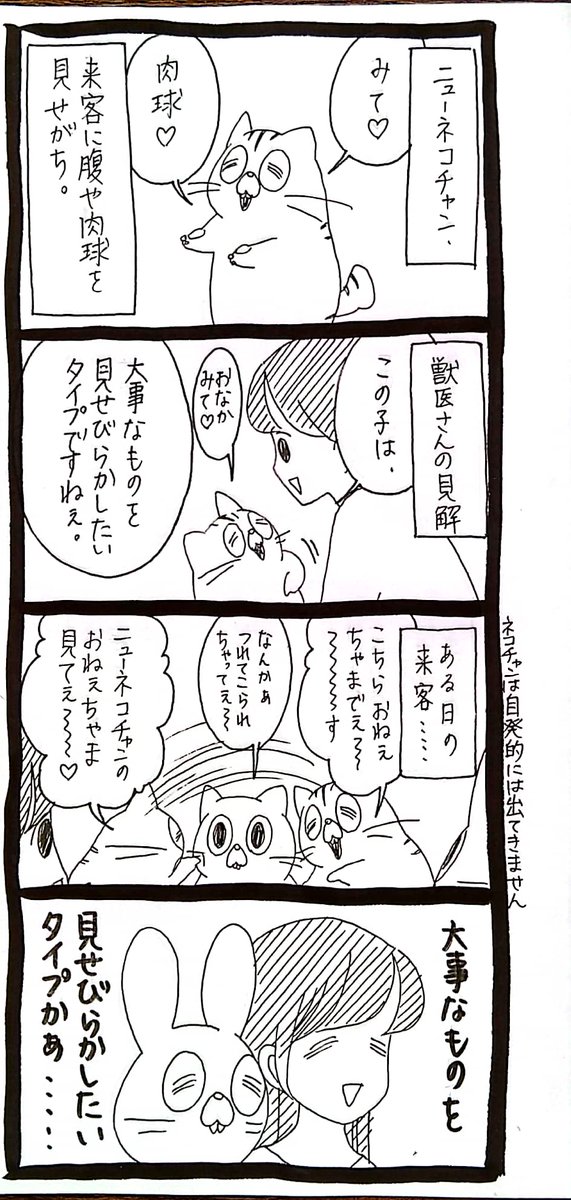 ニューネコチャン、
みて♡
肉球♡
来客に腹や肉球を
見せがち。
獣医さんの見解
この子は、
おなか
みて♡
大事なものを
見せびらかしたい
タイプですねぇ。
ある日の
来客・・・・
こちらおねぇ
ちゃまでぇ〜〜
〜〜〜〜す
なんかぁ
つれてこられ
ちゃってぇ〜〜
ニューネコチャンの
おねぇちゃま
見てぇ〜〜〜♡
ネコチャンは自発的には出てきません
大事なものを
見せびらかしたい
タイプかぁ・・・・・